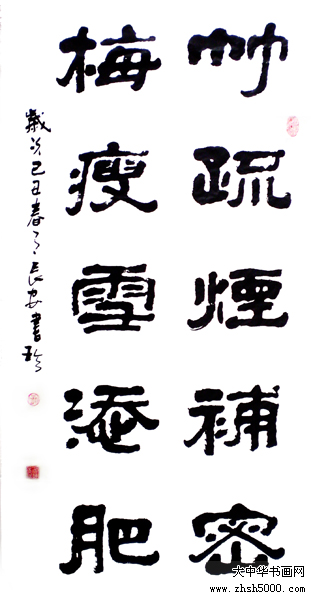 竹疏煙補密
梅瘦雪添肥
歲次己丑春了長安書
大中华书画网
www.zhsh5000.com